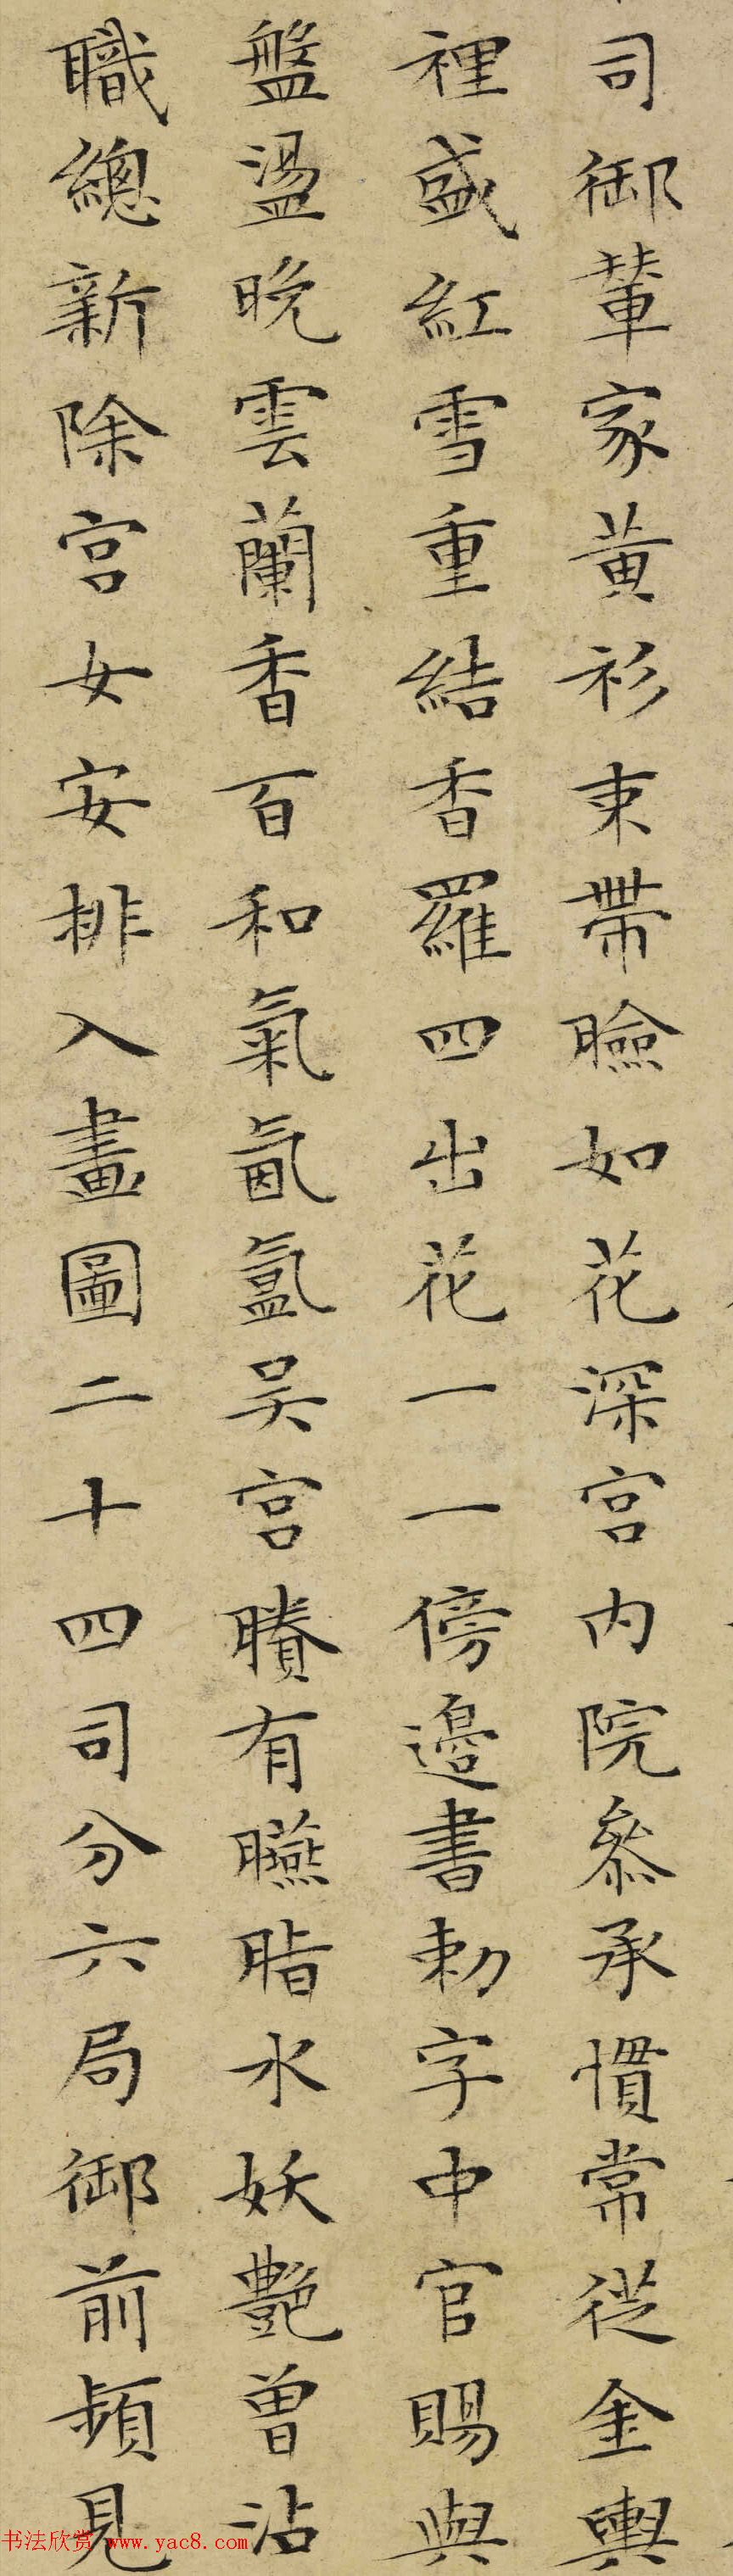 司御輦家黃衫束帶臉如花深宮内院參承慣常從金輿
裡盛紅雪重結香羅四出花一一傍邊書勅字中官賜與
盤盪晚雲蘭香百和氣氤氳吳宮賸有臙脂水妖艷曾沾
職總新除宮女安排入畫圖二十四司分六局御前頻見
书法欣赏 www.yac8.com